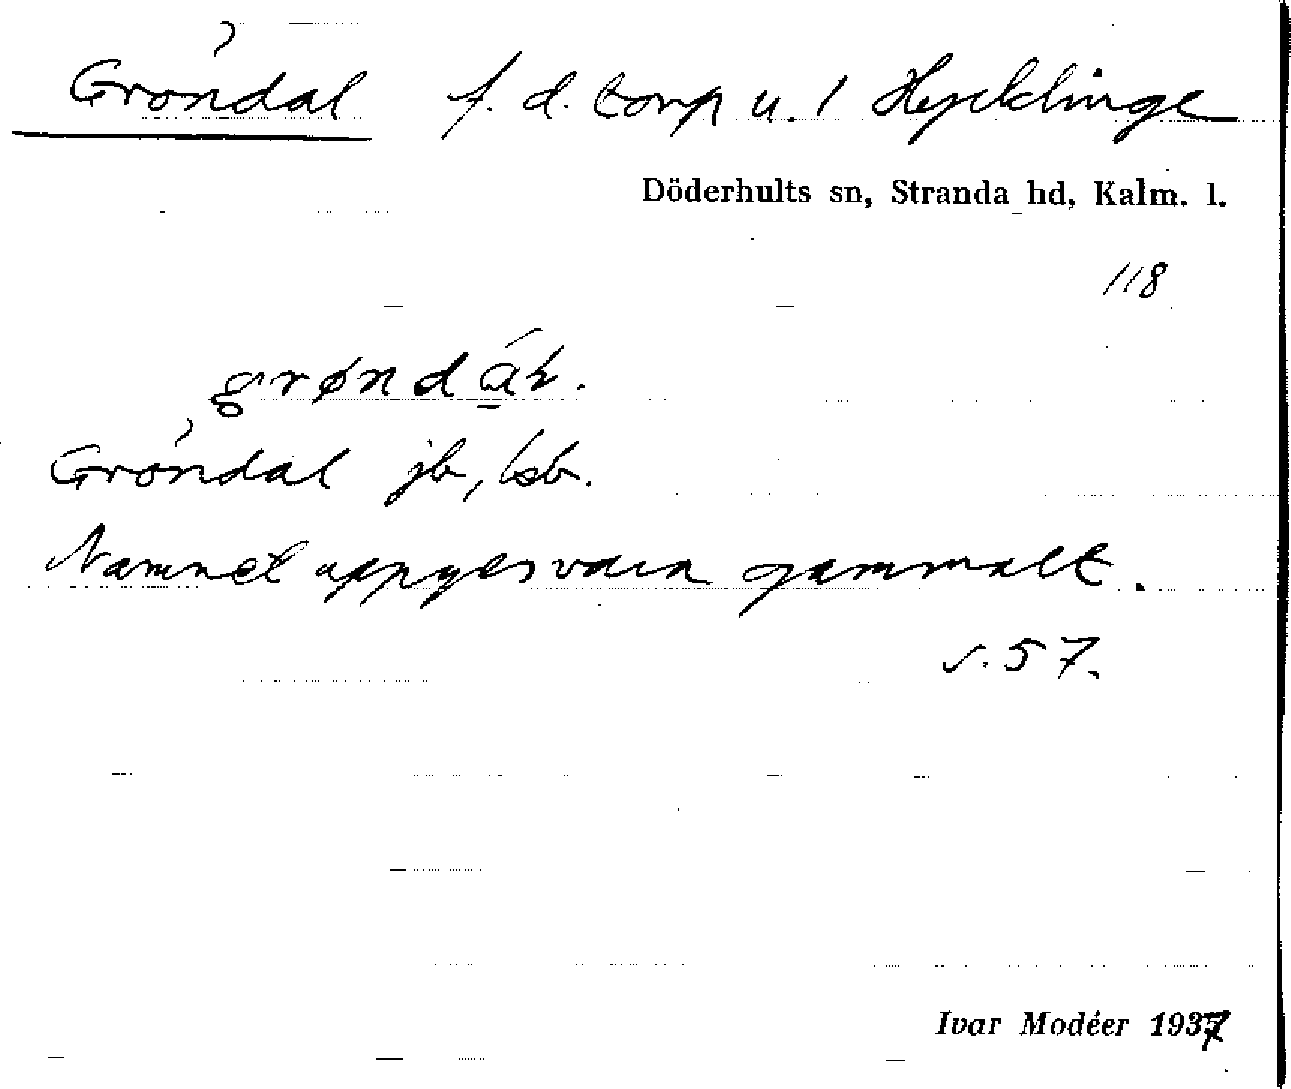 Gröndal f. d. torp u. 1 Hycklinge
Döderhults sn, Stranda hd, Kalm. l.
118
grøndál.
Gröndal jb, lsb.
Namnet uppges vara gammalt.
s. 57.
Ivar Modéer 1937